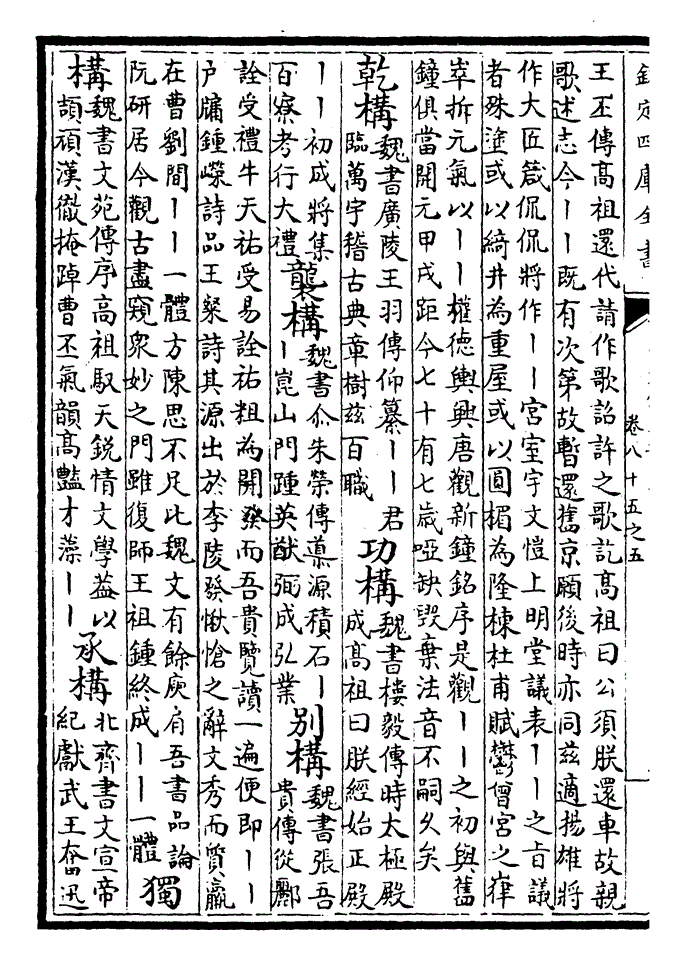 欽定四庫全書
卷八十五之五
王丕傳高祖還代請作歌詔許之歌訖高祖曰公須朕還車故親
歌述志今丨丨既有次第故暫還舊京願後時亦同兹適揚雄將
作大匠箴侃侃將作丨丨宮室宇文愷上明堂議表丨丨之旨議
者殊塗或以綺井為重屋或以圓楣為隆棟杜甫賦鬱曾宮之嵂
崒拆元氣以丨丨權德輿興唐觀新鐘銘序是觀丨丨之初與舊
鐘俱當開元甲戌距今七十有七歲啞缺毀棄法音不嗣乆矣
乾構
魏書廣陵王羽傳仰纂丨丨君
臨萬宇稽古典章樹兹百職
功構
魏書樓毅傳時太極殿
成高祖曰朕經始正殿
丨丨初成將集
百寮考行大禮
襲構
魏書尒朱榮傳導源積石丨
丨崑山門踵英猷弼成弘業
別構
魏書張吾
貴傳從酈
詮受禮牛天祐受易詮祐粗為開發而吾貴覽讀一遍便即丨丨
户牖鍾嶸詩品王粲詩其源出於李陵發愀愴之辭文秀而質羸
在曹劉間丨丨一體方陳思不足比魏文有餘庾肩吾書品論
阮研居今觀古盡窺衆妙之門雖復師王祖鍾終成丨丨一體
獨
構
魏書文苑傳序高祖馭天鋭情文學葢以
頡頏漢徹掩踔曹丕氣韻高豔才藻丨丨
承構
北齊書文宣帝
紀獻武王奮迅